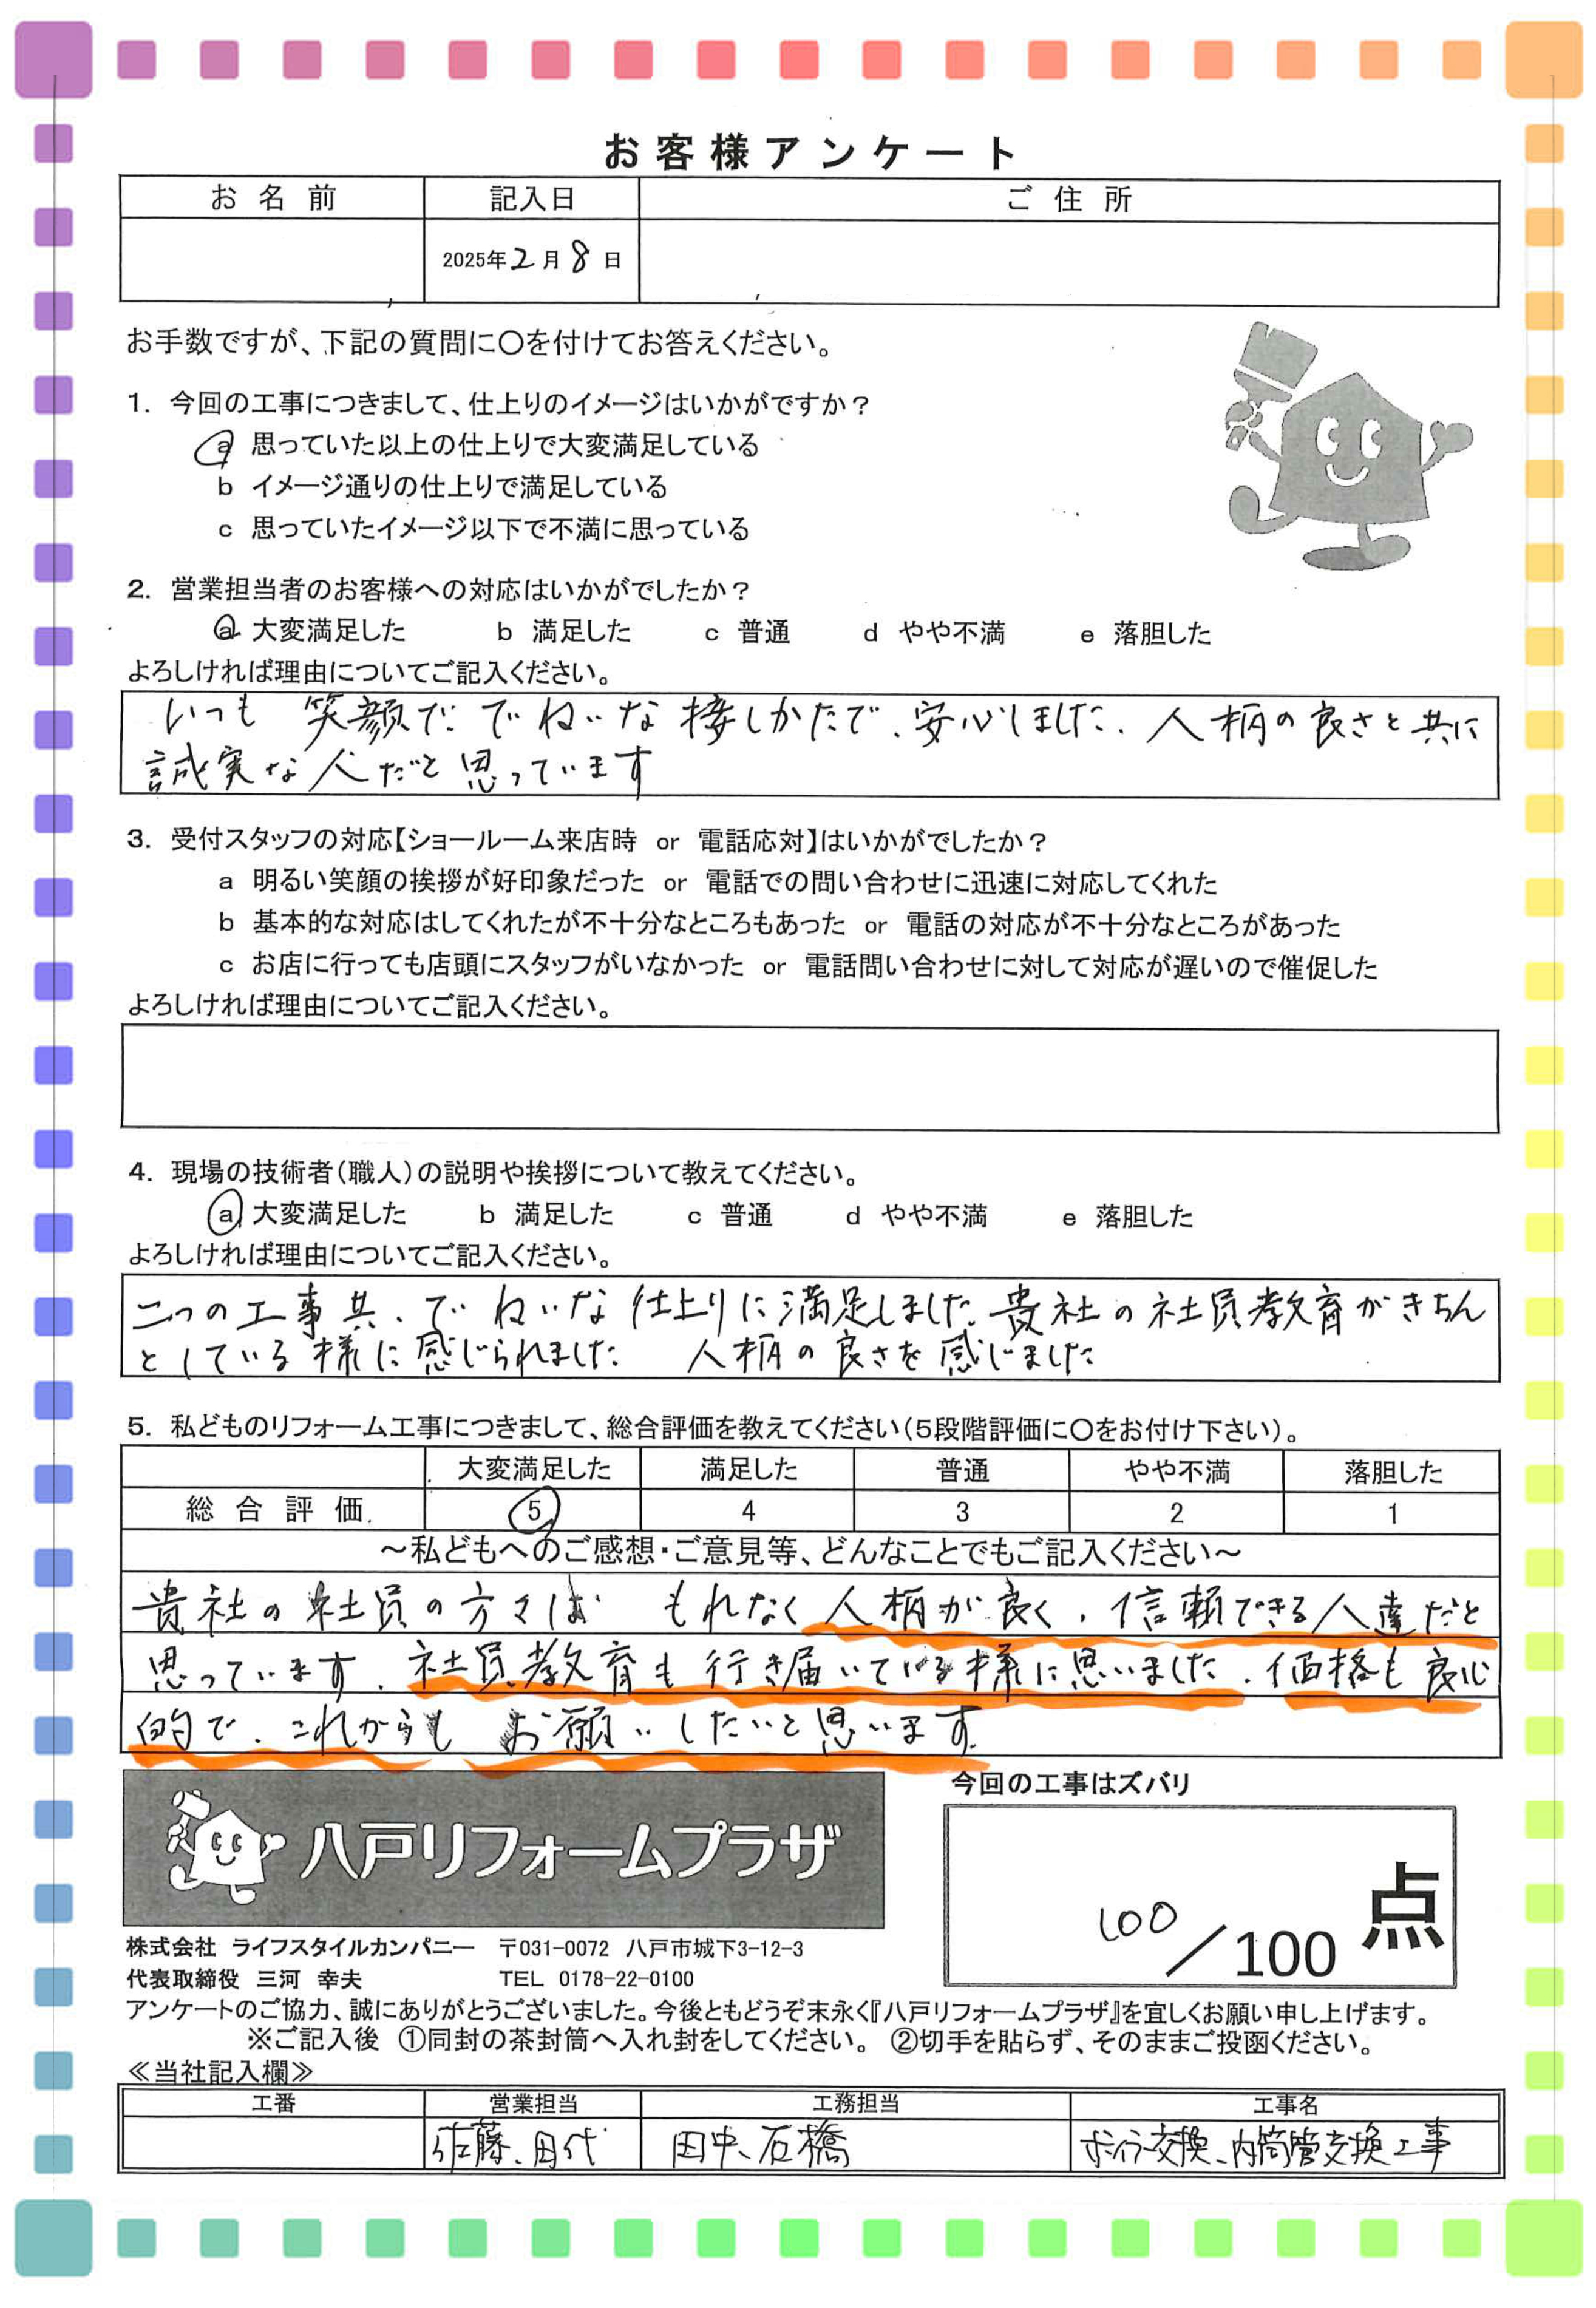 お客様アンケート
お名前 記入日 ご住所
2025年2月8日
お手数ですが、下記の質問に〇を付けてお答えください。
1. 今回の工事につきまして、仕上りのイメージはいかがですか？
a 思っていた以上の仕上りで大変満足している
b イメージ通りの仕上りで満足している
c 思っていたイメージ以下で不満に思っている
2. 営業担当者のお客様への対応はいかがでしたか？
a 大変満足した b 満足した c 普通 d やや不満 e 落胆した
よろしければ理由についてご記入ください。
いつも 笑顔で ていねいな 接しかたで、安心しました、人柄の良さと共に
誠実な人だと思っています
3. 受付スタッフの対応【ショールーム来店時 or 電話応対】はいかがでしたか？
a 明るい笑顔の挨拶が好印象だった or 電話での問い合わせに迅速に対応してくれた
b 基本的な対応はしてくれたが不十分なところもあった or 電話の対応が不十分なところがあった
c お店に行っても店頭にスタッフがいなかった or 電話問い合わせに対して対応が遅いので催促した
よろしければ理由についてご記入ください。
4. 現場の技術者（職人）の説明や挨拶について教えてください。
a 大変満足した b 満足した c 普通 d やや不満 e 落胆した
よろしければ理由についてご記入ください。
二つの工事共、ていねいな仕上りに満足しました。貴社の社員教育がきちん
としている様に感じられました 人柄の良さを感じました
5. 私どものリフォーム工事につきまして、総合評価を教えてください（5段階評価に〇をお付け下さい）。
大変満足した 満足した 普通 やや不満 落胆した
総合評価 5 4 3 2 1
～私どもへのご感想・ご意見等、どんなことでもご記入ください～
貴社の社員の方々は もれなく人柄が良く、信頼できる人達だと
思っています、社員教育も行き届いている様に思いました、価格も良心
的で、これからも お願いしたいと思います。
八戸リフォームプラザ
今回の工事はズバリ
100/100点
株式会社 ライフスタイルカンパニー 〒031-0072 八戸市城下3-12-3
代表取締役 三河 幸夫 TEL 0178-22-0100
アンケートのご協力、誠にありがとうございました。今後ともどうぞ末永く『八戸リフォームプラザ』を宜しくお願い申し上げます。
※ご記入後 ①同封の茶封筒へ入れ封をしてください。 ②切手を貼らず、そのままご投函ください。
≪当社記入欄≫
工番 営業担当 工務担当 工事名
佐藤、田代 田中、石橋 ボイラー交換、内筒管交換工事